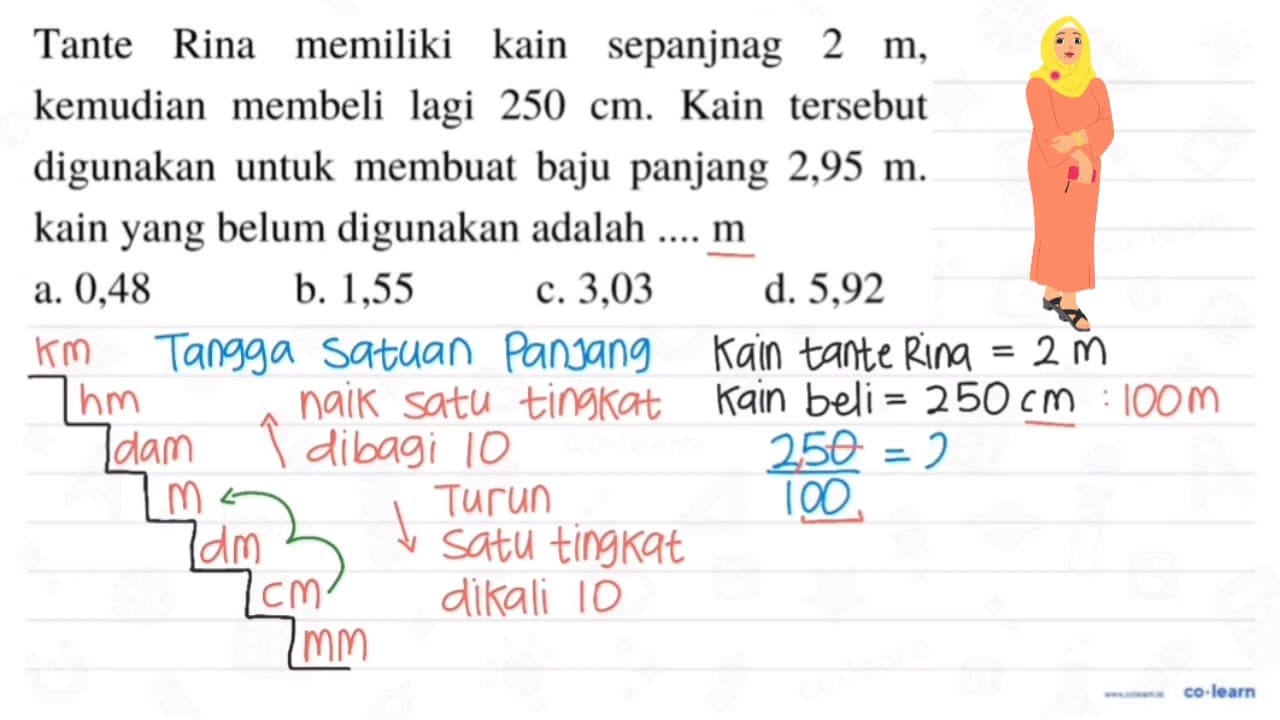 Tante Rina memiliki kain sepanjnag 2 m,
kemudian membeli lagi 250 cm. Kain tersebut
digunakan untuk membuat baju panjang 2,95 m.
kain yang belum digunakan adalah .... m
a. 0,48 b. 1,55 c. 3,03 d. 5,92
Km Tangga Satuan Panjang
hm naik satu tingkat
dam dibagi 10
m Turun
dm satu tingkat
cm dikali 10
mm
Kain tante Rina = 2 m
Kain beli = 250 cm : 100 m
2,50 = 2
100
co·learn